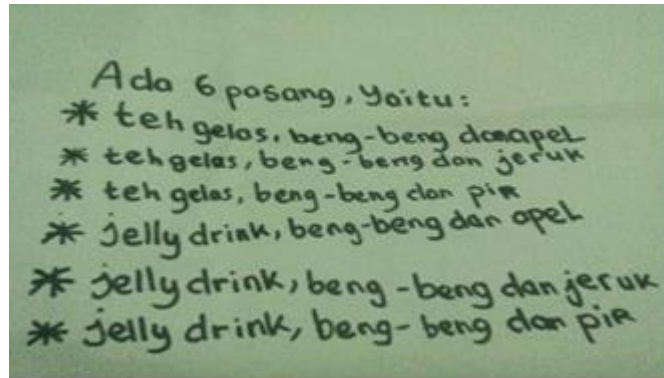 Ada 6 pasang, yaitu:
* teh gelas, beng-beng dan apel
* teh gelas, beng-beng dan jeruk
* teh gelas, beng-beng dan pir
* jelly drink, beng-beng dan apel
* jelly drink, beng-beng dan jeruk
* jelly drink, beng-beng dan pir